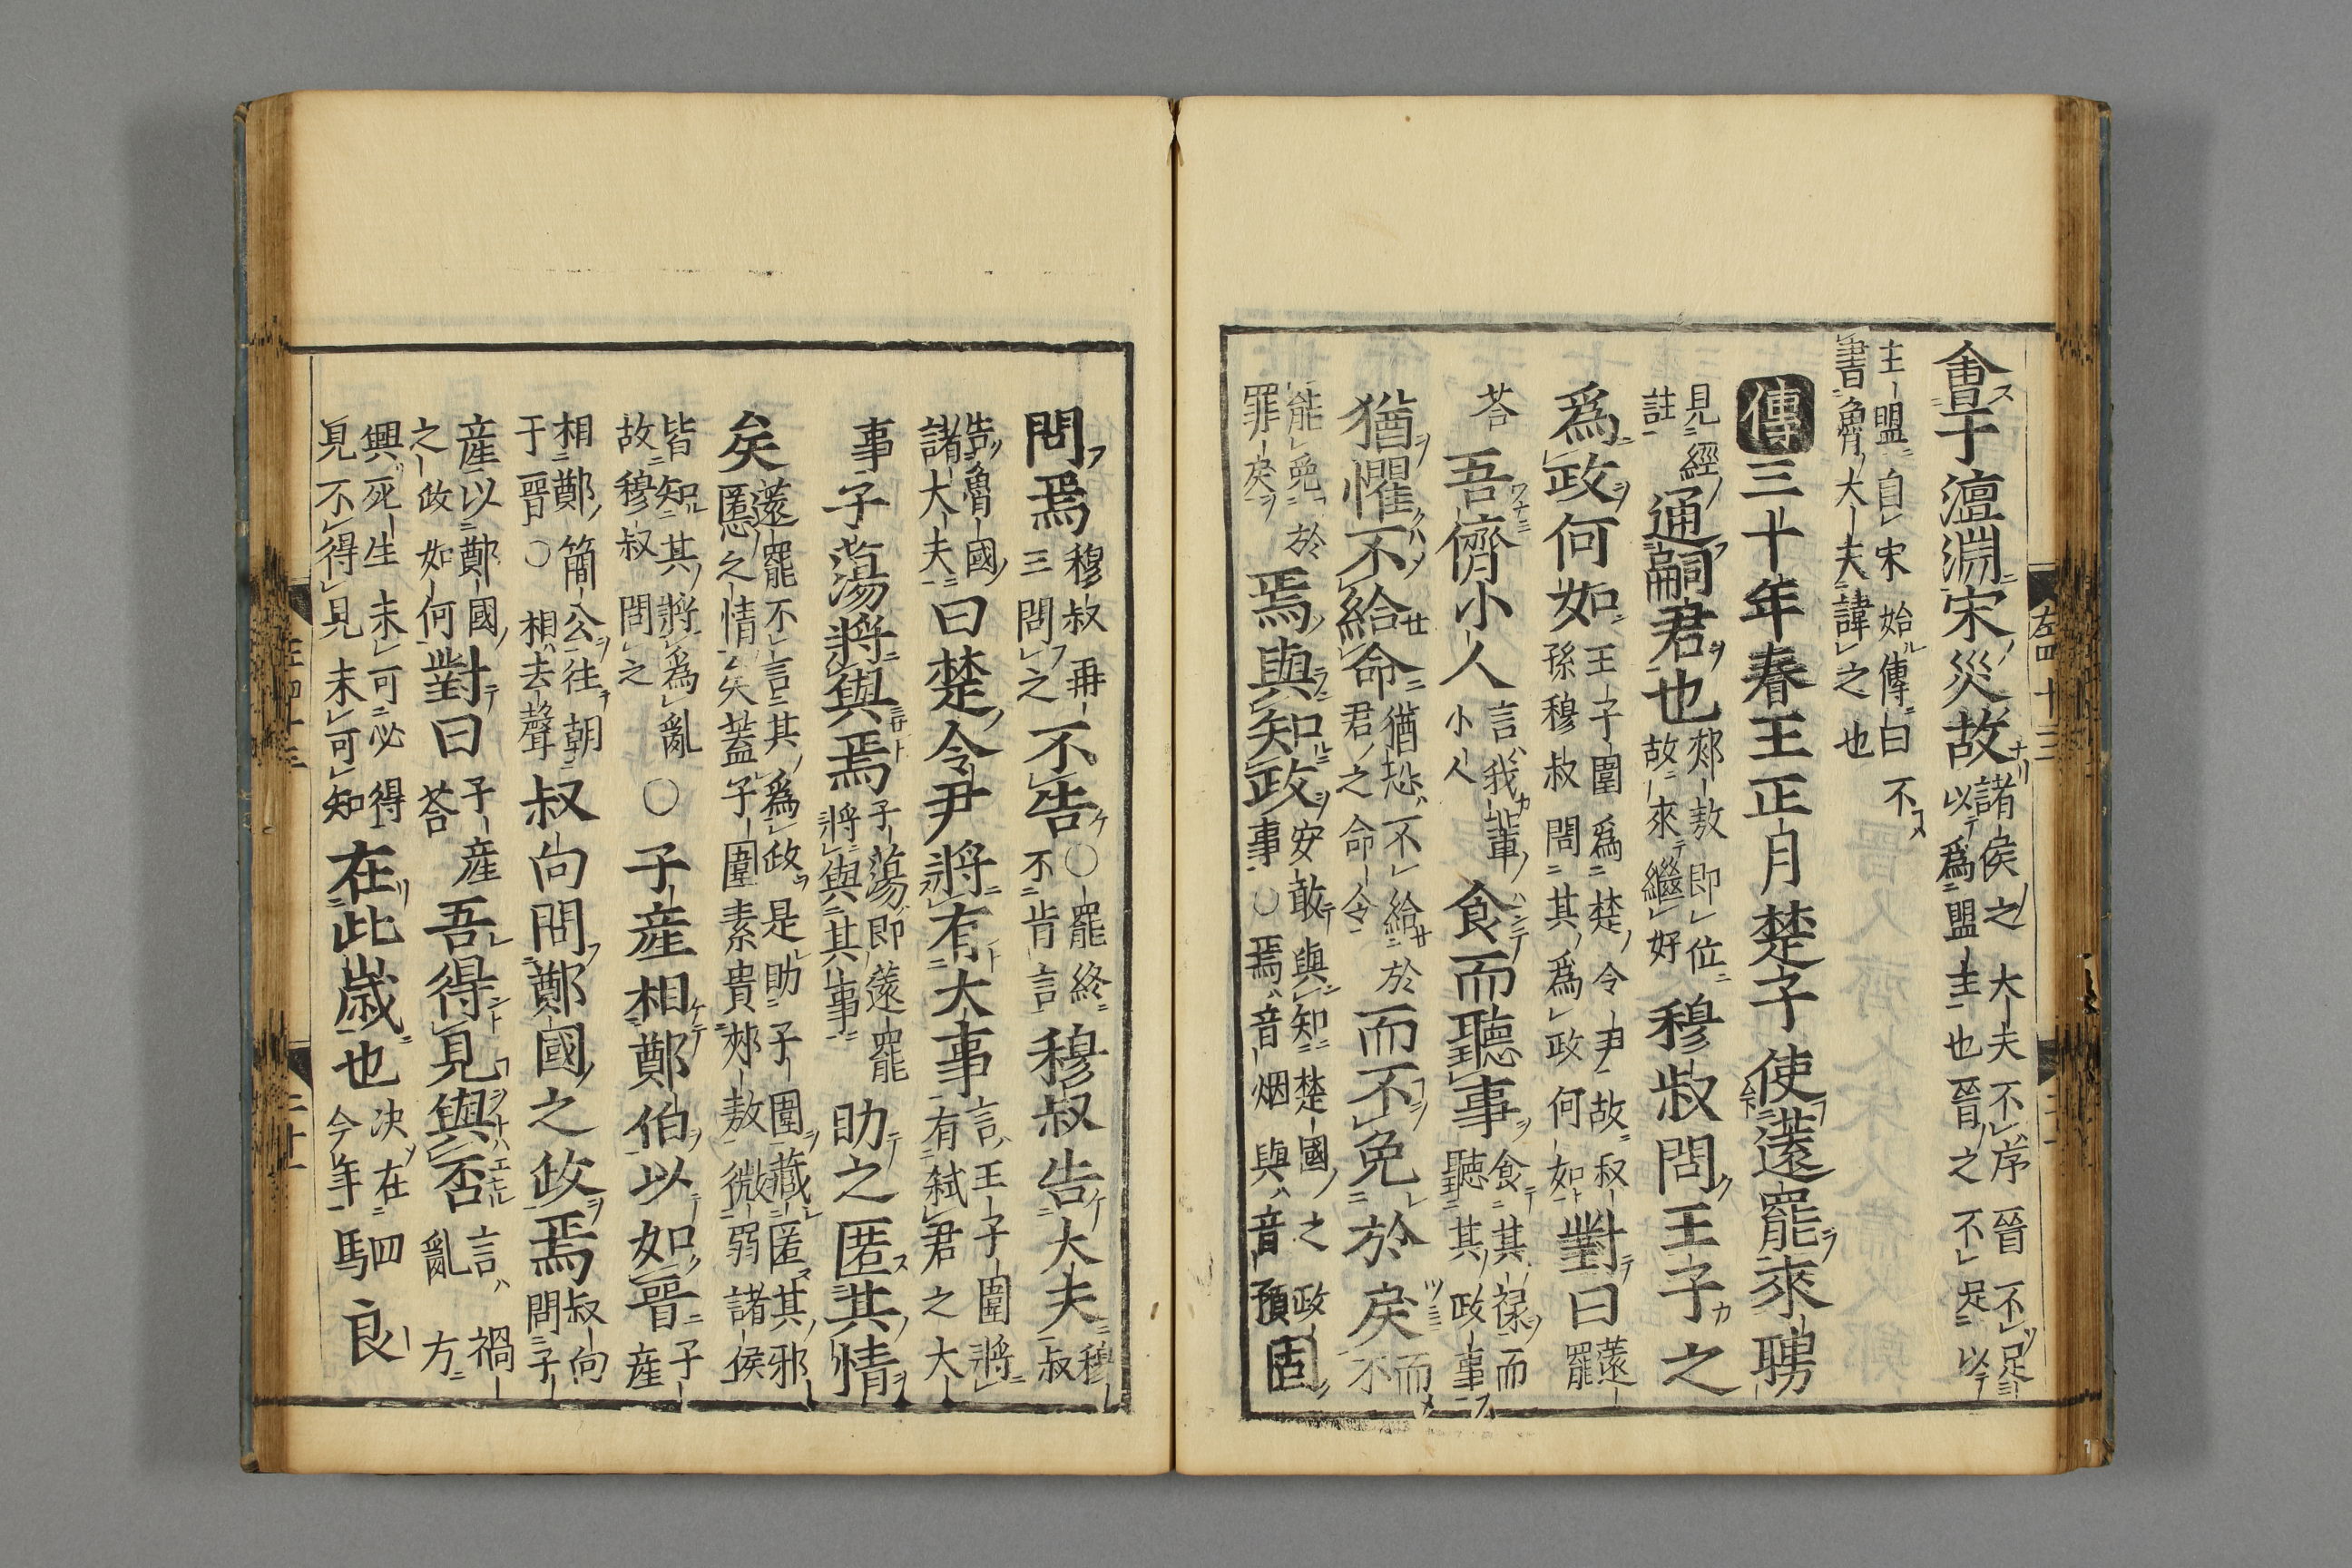 左四十三
會于澶淵宋災故諸侯之大夫不序晉不足以爲盟主也晉之不足以
主盟自宋始傳曰不書魯大夫諱之也
傳三十年春王正月楚子使薳罷來聘
見經註通嗣君也郟敖即位故來繼好穆叔問王子之
爲政何如王子圍爲楚令尹故叔孫穆叔問其爲政何如對曰薳罷
荅吾儕小人言我輩小人食而聽事食其祿而聽其政事
猶懼不給命猶恐不給於君之命令而不免於戾而不
能免於罪戾焉與知政安敢與知楚國之政事○焉音烟與音預固
問焉穆叔再三問之不告○罷終不肯言穆叔告大夫穆叔
告魯國諸大夫曰楚令尹將有大事言王子圍將有弒君之大
事子蕩將與焉子蕩即薳罷將與其事助之匿其情
矣薳罷不言其爲政是助子圍藏匿其邪慝之情矣蓋子圍素貴郟敖微弱諸侯
皆知其將爲亂故穆叔問之○子產相鄭伯以如晉子產
相鄭簡公往朝于晉○相去聲叔向問鄭國之政焉叔向問子
產以鄭國之政如何對曰子產荅吾得見與否言禍亂方
興死生未可必得見不得見未可知在此歲也決在今年駟良